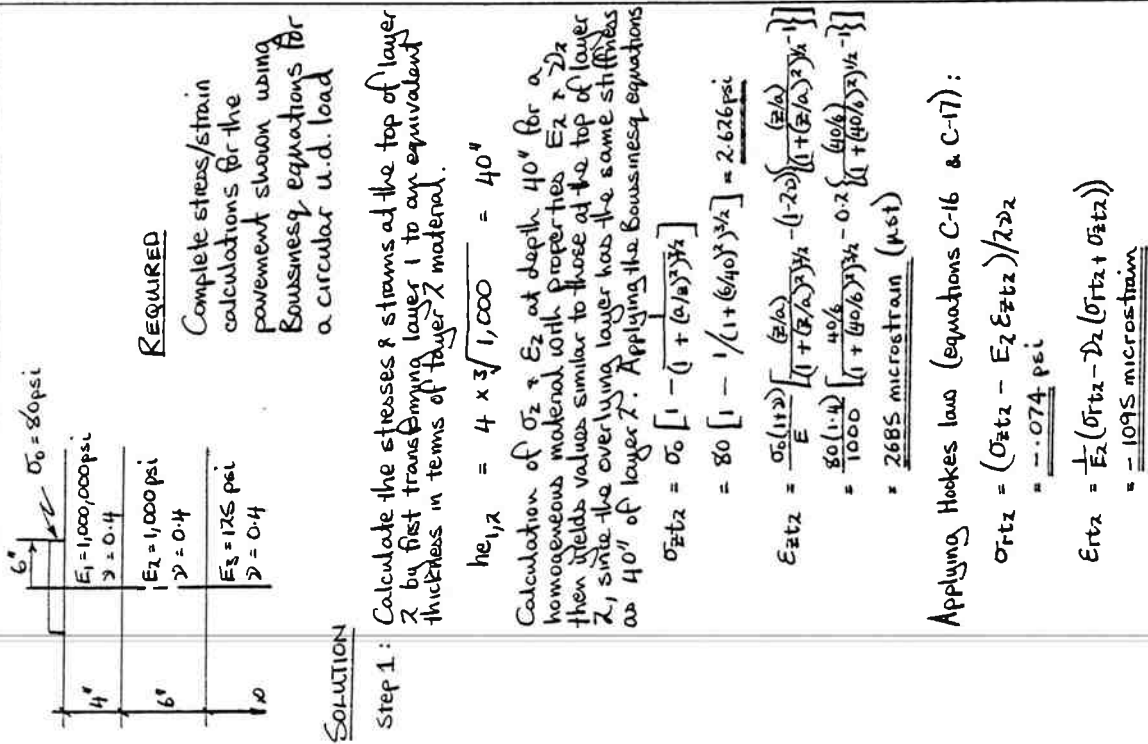 6"
σ₀ = 80psi
4"
E₁ = 1,000,000psi
ν = 0.4
6"
E₂ = 1,000psi
ν = 0.4
∞
E₃ = 125 psi
ν = 0.4
REQUIRED
Complete stress/strain
calculations for the
pavement shown using
Bousinesq equations for
a circular u.d. load
SOLUTION
Step 1: Calculate the stresses & strains at the top of layer
2 by first transforming layer 1 to an equivalent
thickness in terms of layer 2 material.
he₁,₂ = 4 × ³√1,000 = 40"
Calculation of σz & Ez at depth 40" for a
homogeneous material with properties E₂ & ν₂
then yields values similar to those at the top of layer
2, since the overlying layer has the same stiffness
as 40" of layer 2. Applying the Bousinesq equations
σzt2 = σ₀ [1 - 1/(1 + (a/z)²)^3/2]
= 80 [1 - 1/(1+(6/40)²)^3/2] = 2.626psi
εzt2 = σ₀(1+ν)/E [(z/a)/(1+(z/a)²)^3/2 - (1-2ν){(z/a)/(1+(z/a)²)^1/2 - 1}]
= 80(1.4)/1000 [40/6/(1+(40/6)²)^3/2 - 0.2{(40/6)/(1+(40/6)²)^1/2 - 1}]
= 2685 microstrain (μst)
Applying Hookes law (equations C-16 & C-17):
σrt2 = (σzt2 - E₂ εzt2)/2ν₂
= -.074 psi
εrt2 = 1/E₂ (σrt2 - ν₂(σrt2 + σzt2))
= -1095 microstrain